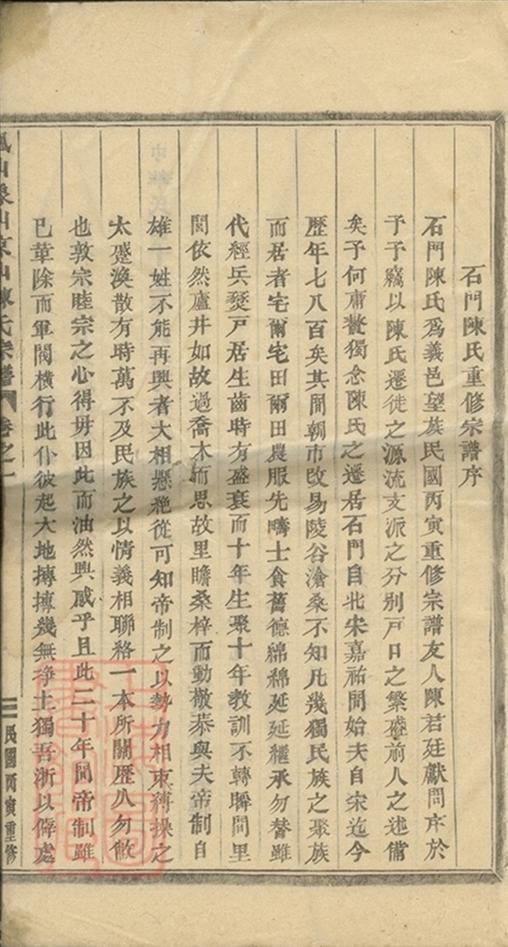 石門陳氏重修宗譜序
石門陳氏爲義邑望族民國丙寅重修宗譜友人陳君廷獻問序於
予予竊以陳氏遷徙之源流支派之分別戸口之繁盛前人之述備
矣予何庸贅獨念陳氏之遷居石門自北宋嘉祐間始夫自宋迄今
歷年七八百矣其間朝市改易陵谷滄桑不知凡幾獨民族之聚族
而居者宅爾宅田爾田農服先疇士食舊德綿綿延延繼承勿替雖
代經兵燹戸居生齒時有盛衰而十年生聚十年教訓不轉瞬間里
閈依然廬井如故過喬木而思故里瞻桑梓而動敬恭與夫帝制自
雄一姓不能再興者大相懸絶從可知帝制之以勢力相束縛操之
太蹙渙散有時萬不及民族之以情義相聯絡一本所關歷久勿敝
也敦宗睦宗之心得毋因此而油然興感乎且此二十年間帝制雖
已革除而軍閥橫行此仆彼起大地摶摶幾無淨土獨吾浙以僻處
山象山京山陳氏宗譜
卷之一
二
民國丙寅重修